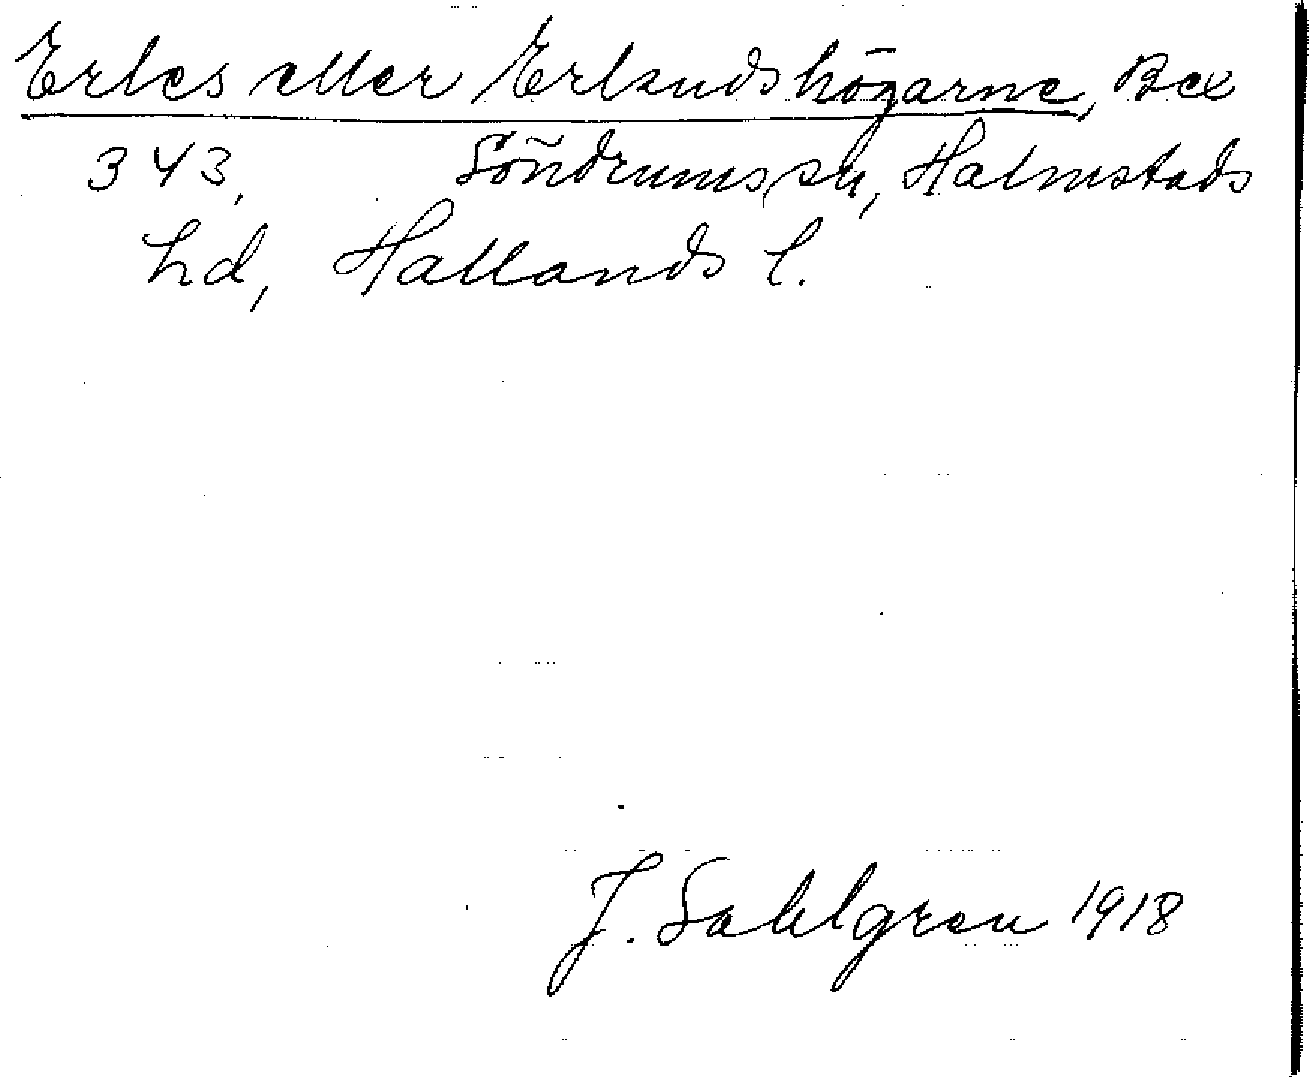 Erles eller Erlandshögarne, Bex
343, Söndrums sn, Halmstads
hd, Hallands l.
J. Sahlgren 1918